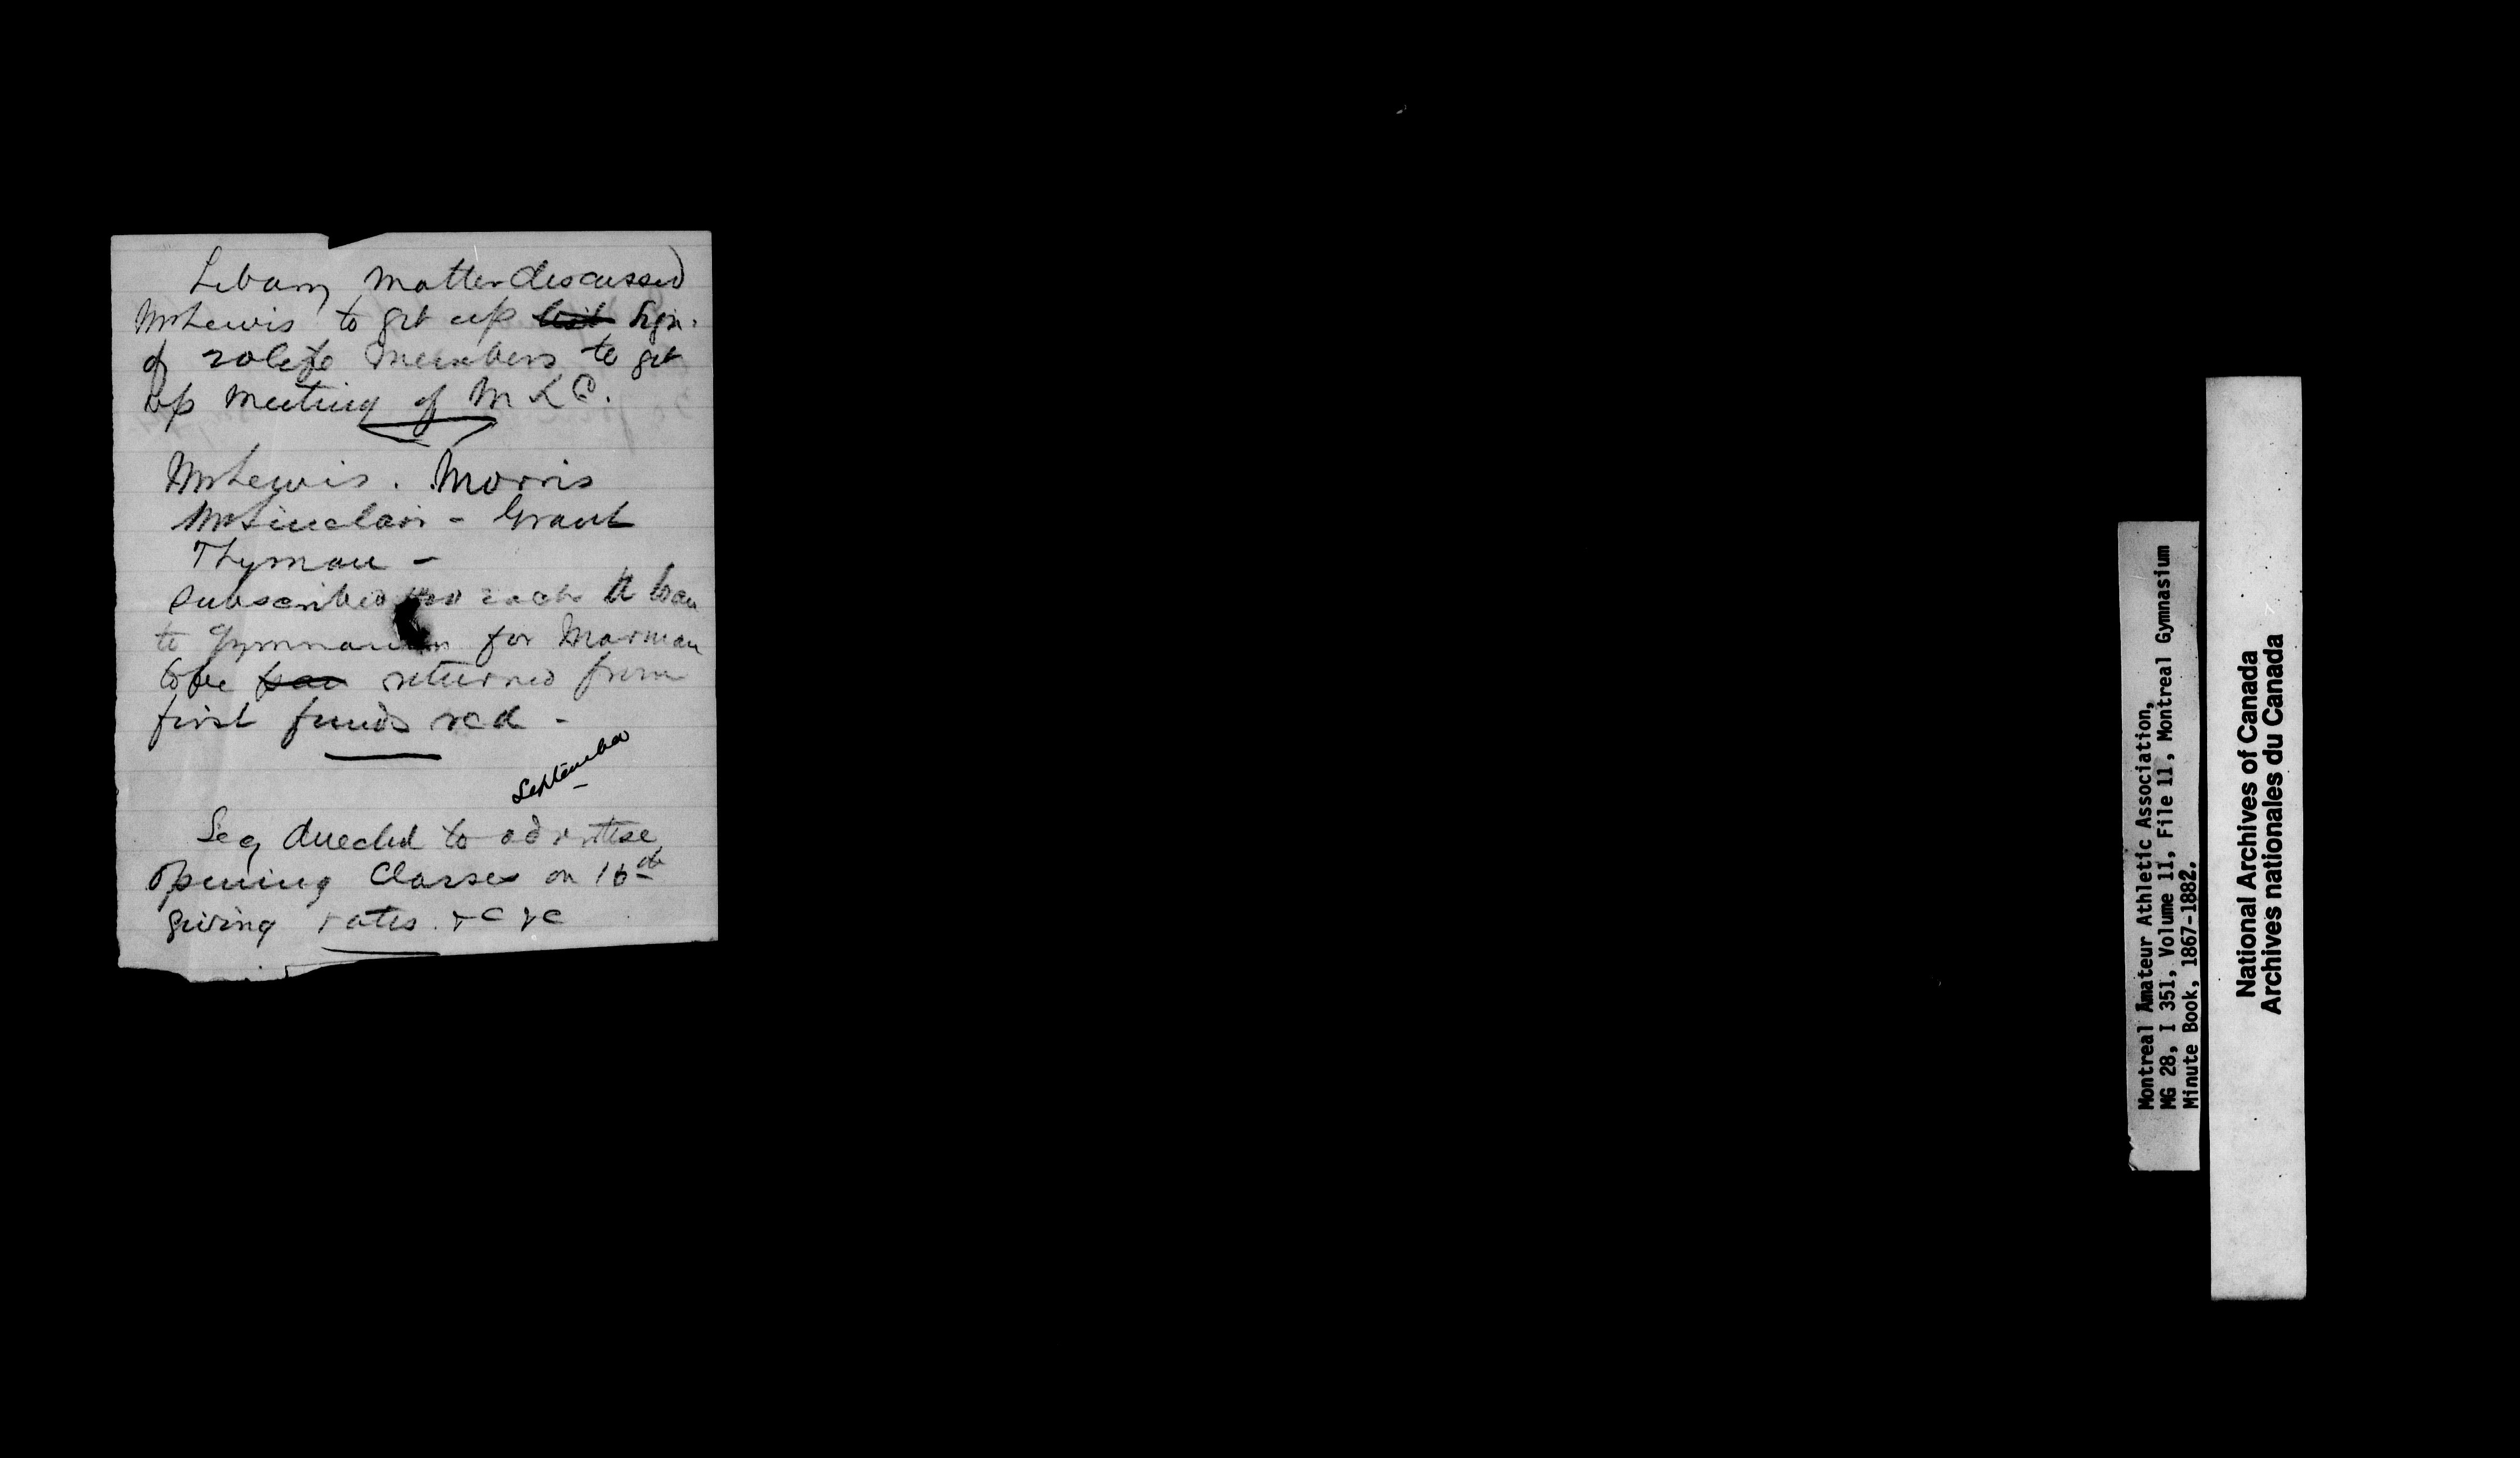 Libary matter discussed
Mr Lewis to get up list sign.
of 20 life members to get
up meeting of M L C.
Mr Lewis. Morris
Mr Sinclair - Grant
T Lyman -
subscribed each loan
to Gymnasium for
to be returned from
first funds recd -
September
Secy directed to advertise
opening Classes on 16th
giving rates. &c &c
Montreal Amateur Athletic Association,
MG 28, I 351, Volume 11, File 11, Montreal Gymnasium
Minute Book, 1867-1882.
National Archives of Canada
Archives nationales du Canada